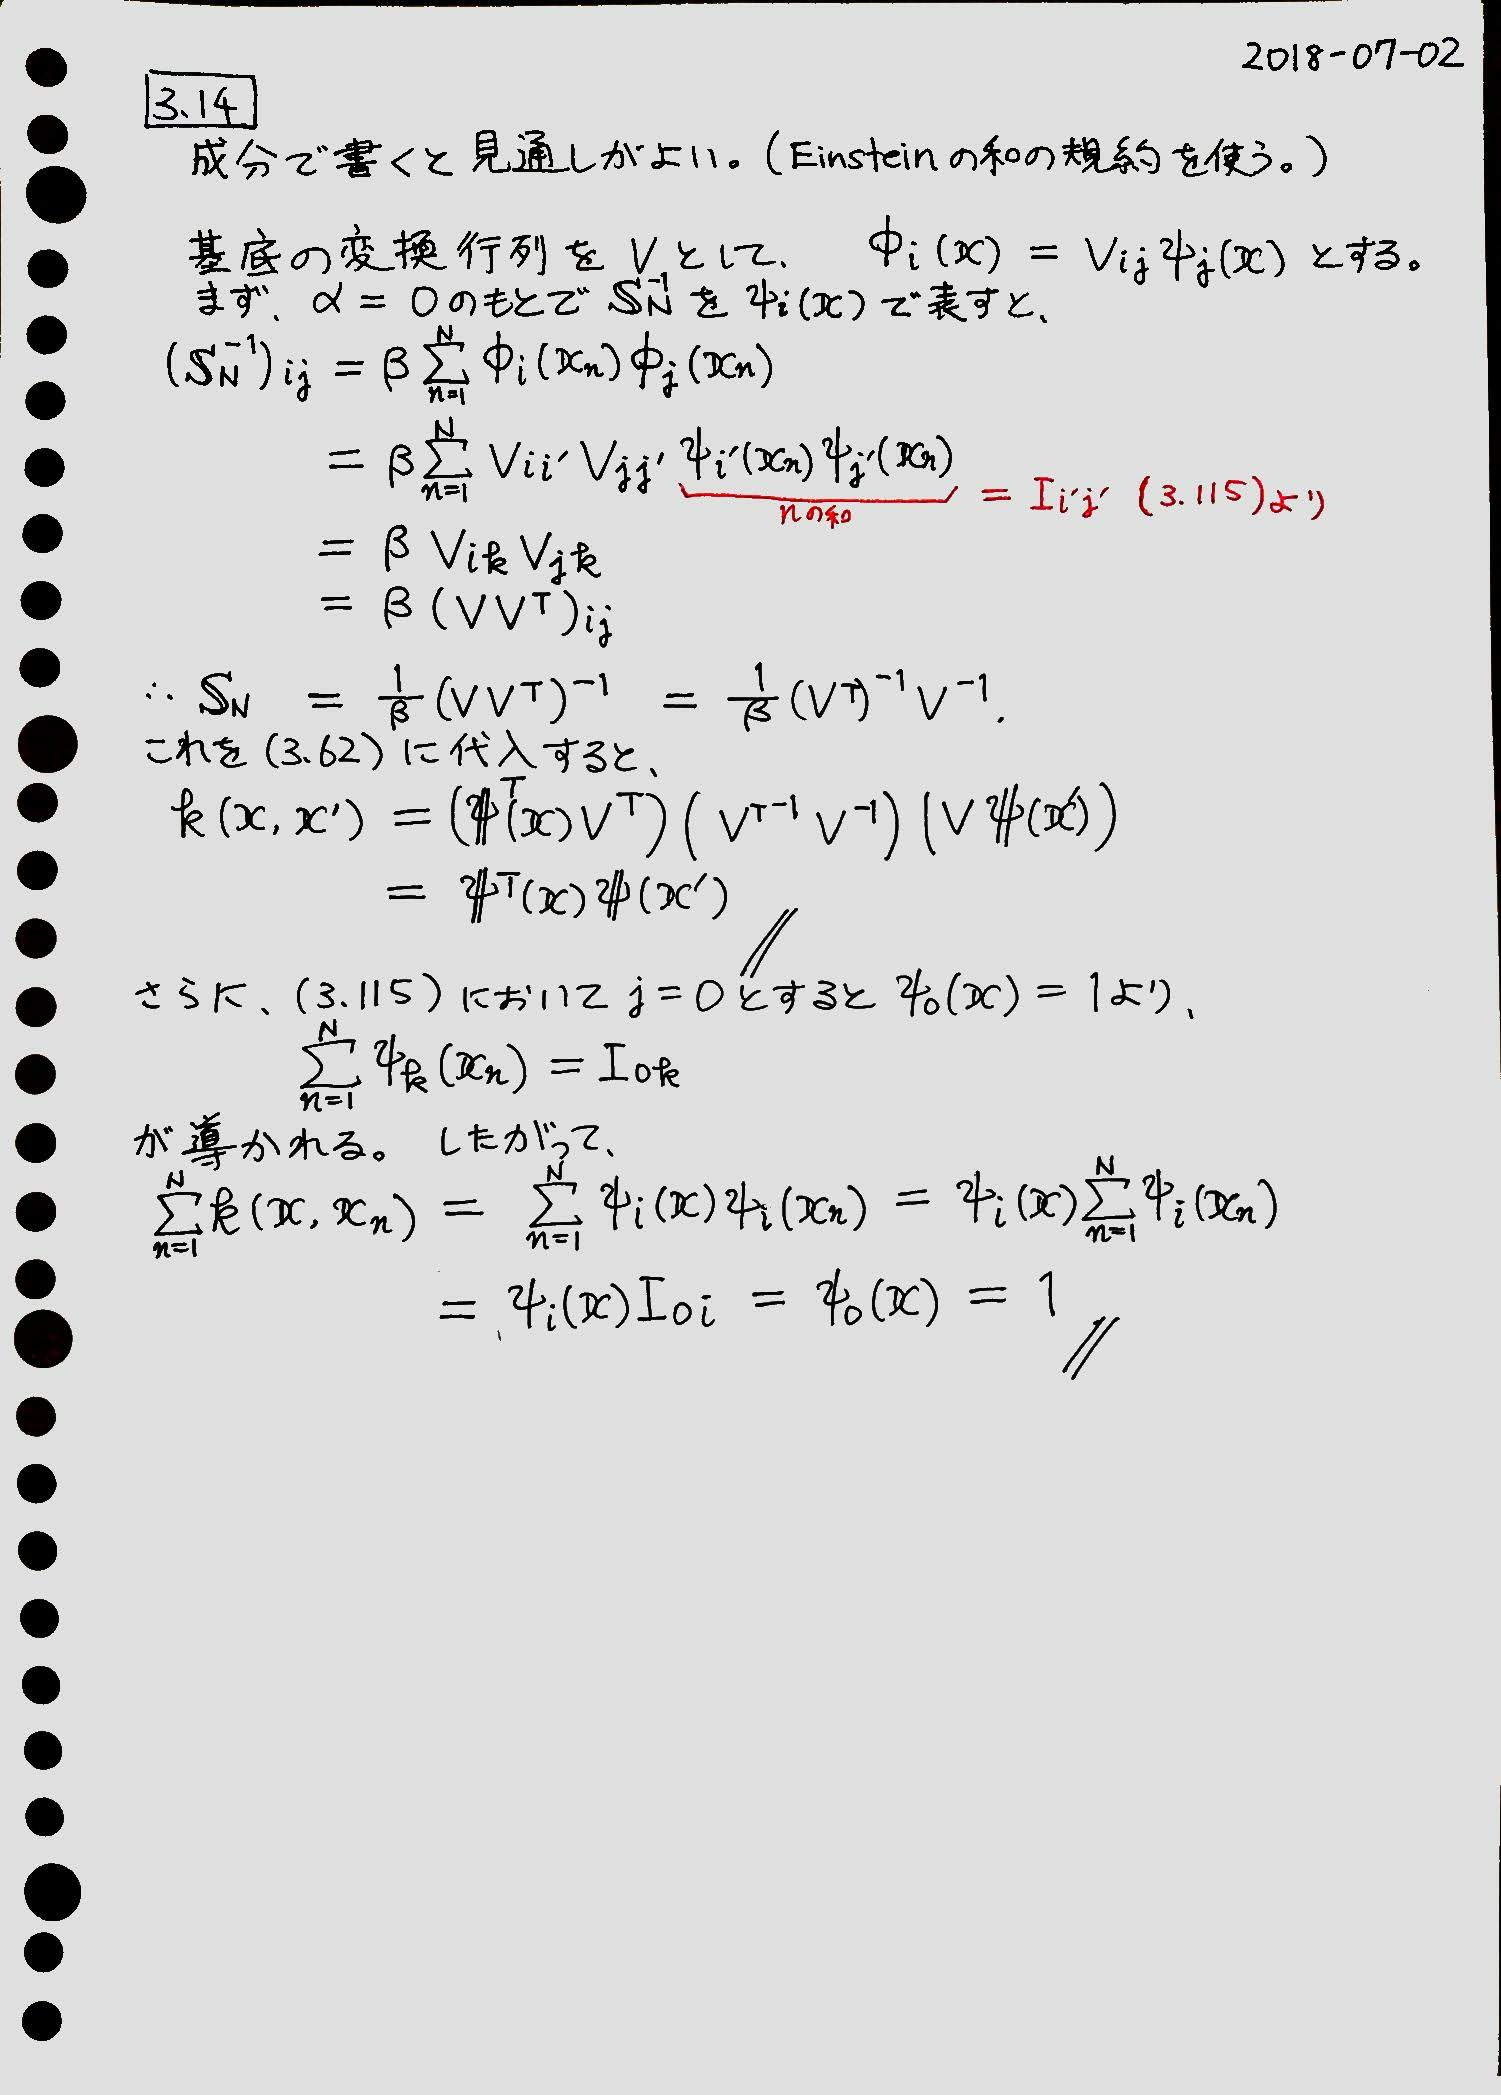 2018-07-02
3.14
成分で書くと見通しがよい。(Einsteinの和の規約を使う。)
基底の変換行列をVとして、 φi(x) = Vij ψj(x) とする。
まず、α = 0のもとで SN⁻¹ を ψi(x) で表すと、
(SN⁻¹)ij = β Σ_{n=1}^{N} φi(xn) φj(xn)
= β Σ_{n=1}^{N} Vii′ Vjj′ ψi′(xn) ψj′(xn) = Ii′j′ (3.115)より
nの和
= β Vik Vjk
= β (VVᵀ)ij
∴ SN = 1/β (VVᵀ)⁻¹ = 1/β (Vᵀ)⁻¹ V⁻¹.
これを (3.62) に代入すると、
k(x, x′) = (ψᵀ(x) Vᵀ) (Vᵀ⁻¹ V⁻¹) (V ψ(x′))
= ψᵀ(x) ψ(x′) //
さらに、(3.115) において j = 0 とすると ψ0(x) = 1 より、
Σ_{n=1}^{N} ψk(xn) = I0k
が導かれる。 したがって、
Σ_{n=1}^{N} k(x, xn) = Σ_{n=1}^{N} ψi(x) ψi(xn) = ψi(x) Σ_{n=1}^{N} ψi(xn)
= ψi(x) I0i = ψ0(x) = 1 //